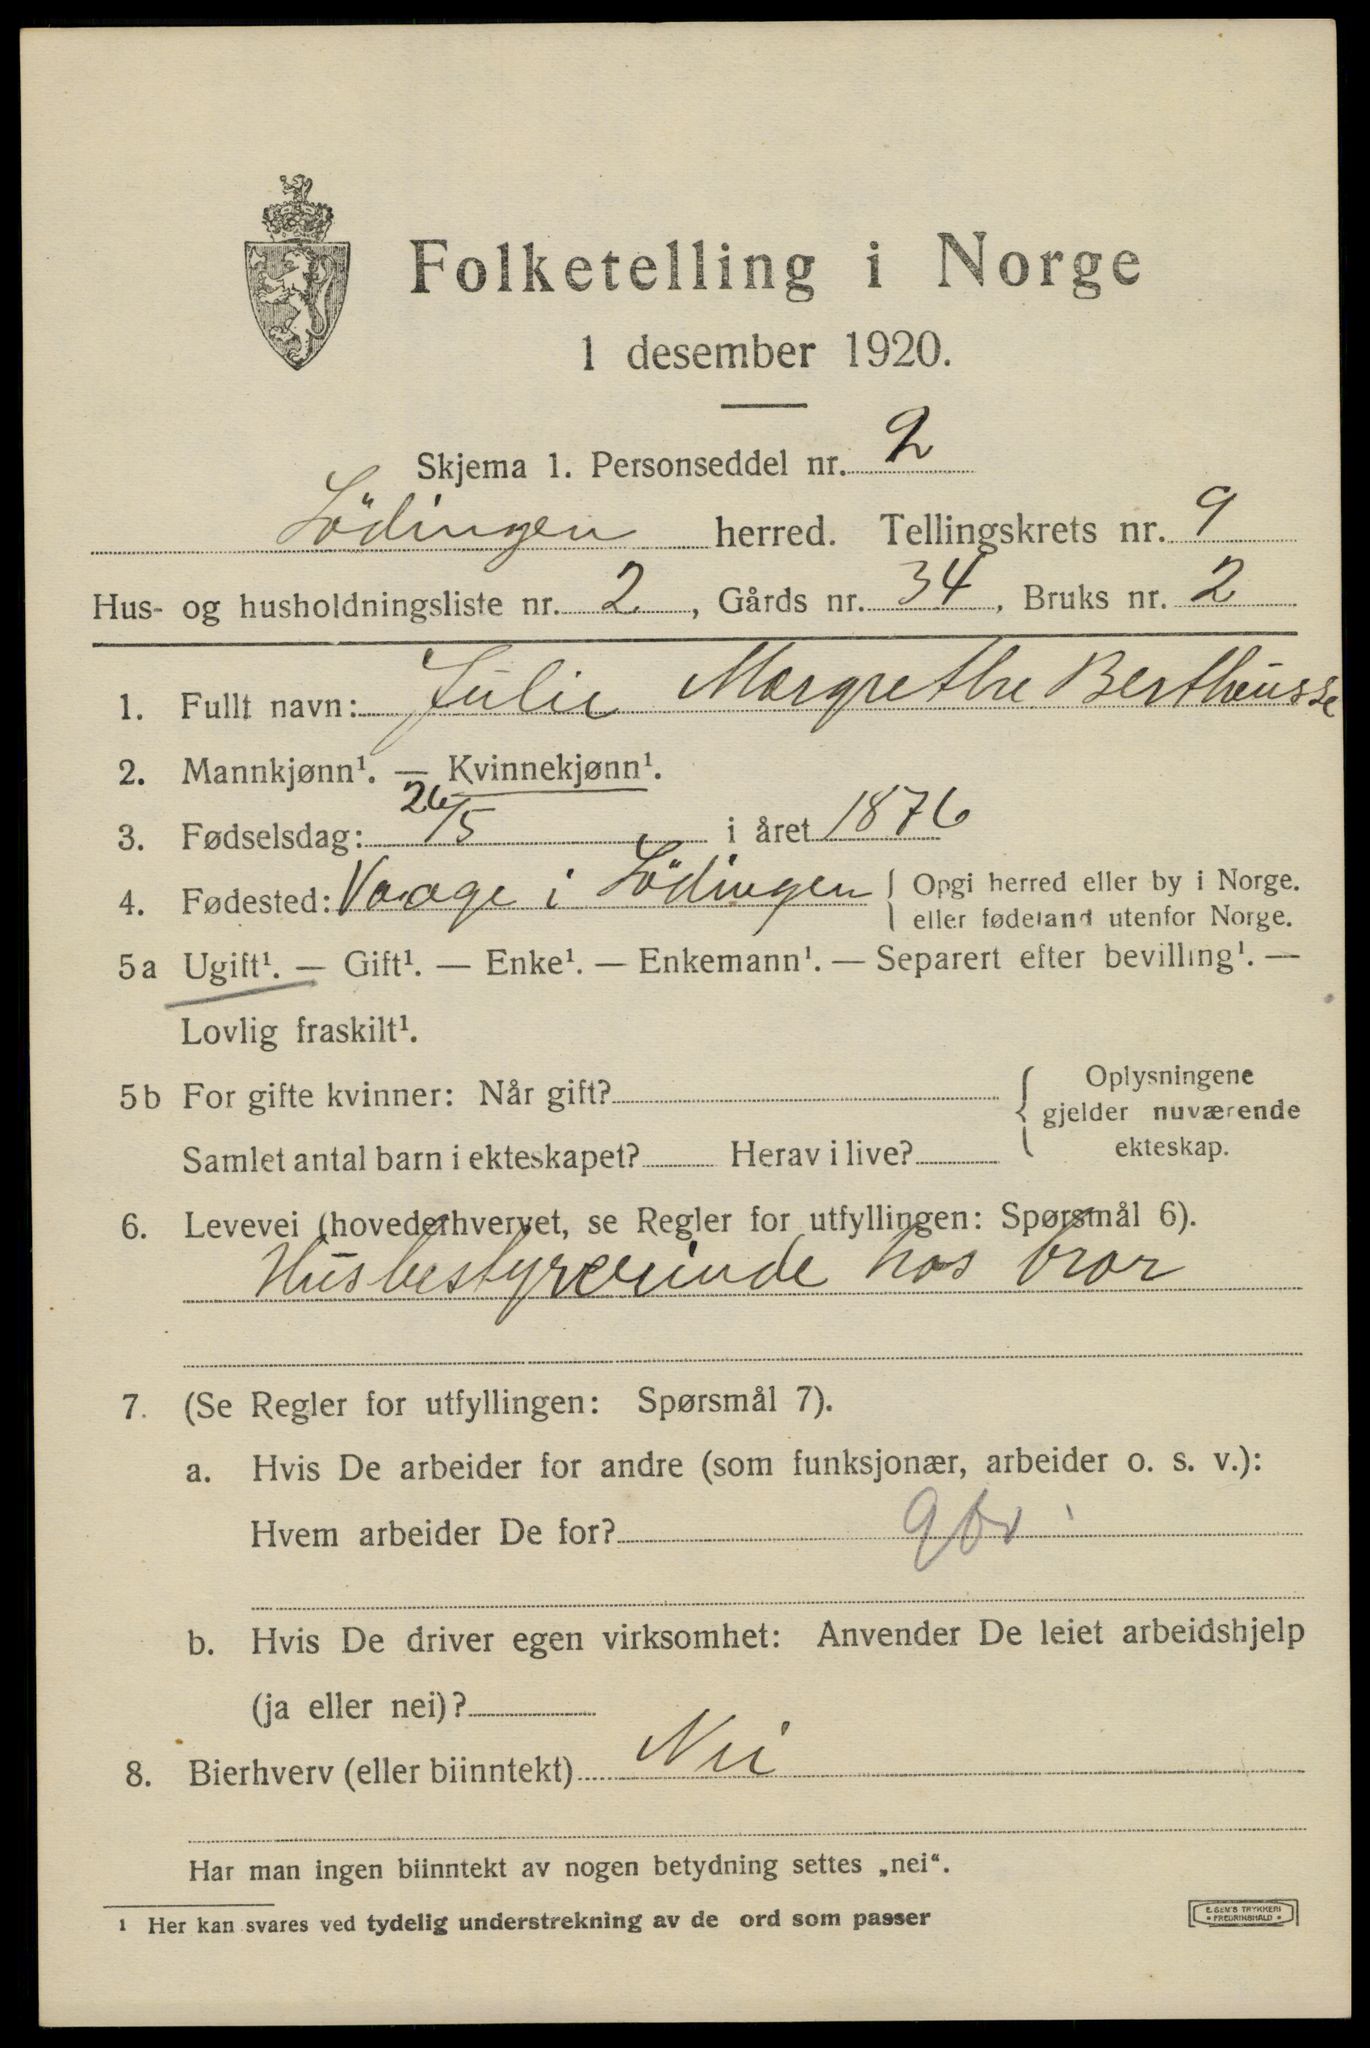 Folketelling i Norge
1 desember 1920.
Skjema 1. Personseddel nr. 2
Lödingen herred. Tellingskrets nr. 9
Hus- og husholdningsliste nr. 2, Gårds nr. 34, Bruks nr. 2
1. Fullt navn: Julie Margrethe Bertheusse
2. Mannkjønn¹. — Kvinnekjønn¹.
3. Fødselsdag: 26/5 i året 1876
4. Fødested: Vaage i Lödingen { Opgi herred eller by i Norge.
eller fødeland utenfor Norge.
5a Ugift¹. — Gift¹. — Enke¹. — Enkemann¹. — Separert efter bevilling¹. —
Lovlig fraskilt¹.
5b For gifte kvinner: Når gift? { Oplysningene
gjelder nuværende
ekteskap.
Samlet antal barn i ekteskapet? Herav i live?
6. Levevei (hovederhvervet, se Regler for utfyllingen: Spørsmål 6).
Husbestyrerinde hos bror
7. (Se Regler for utfyllingen: Spørsmål 7).
a. Hvis De arbeider for andre (som funksjonær, arbeider o. s. v.):
Hvem arbeider De for? gbr
b. Hvis De driver egen virksomhet: Anvender De leiet arbeidshjelp
(ja eller nei)?
8. Bierhverv (eller biinntekt) Nei
Har man ingen biinntekt av nogen betydning settes „nei“.
¹ Her kan svares ved tydelig understrekning av de ord som passer
E. SEM'S TRYKKERI
• FREDRIKSHALD •